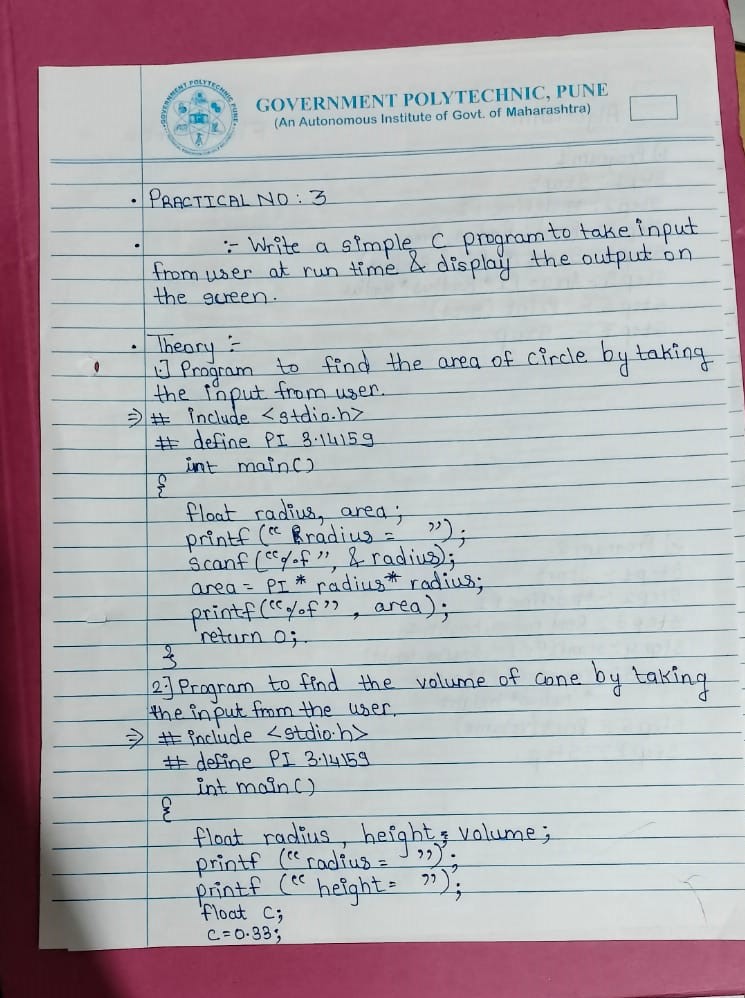 GOVERNMENT POLYTECHNIC, PUNE
(An Autonomous Institute of Govt. of Maharashtra)
• PRACTICAL NO : 3
• :- Write a simple C program to take input
from user at run time & display the output on
the screen.
• Theory :-
1.] Program to find the area of circle by taking
the input from user.
⇒ # include <stdio.h>
# define PI 3.14159
int main()
{
float radius, area ;
printf (“ radius = ”);
scanf (“%f ”, & radius);
area = PI * radius * radius;
printf(“%f” , area);
return 0;
}
2.] Program to find the volume of cone by taking
the input from the user.
⇒ # include <stdio.h>
# define PI 3.14159
int main()
{
float radius , height, volume ;
printf (“ radius = ”);
printf (“ height = ”);
float c;
c = 0.33;